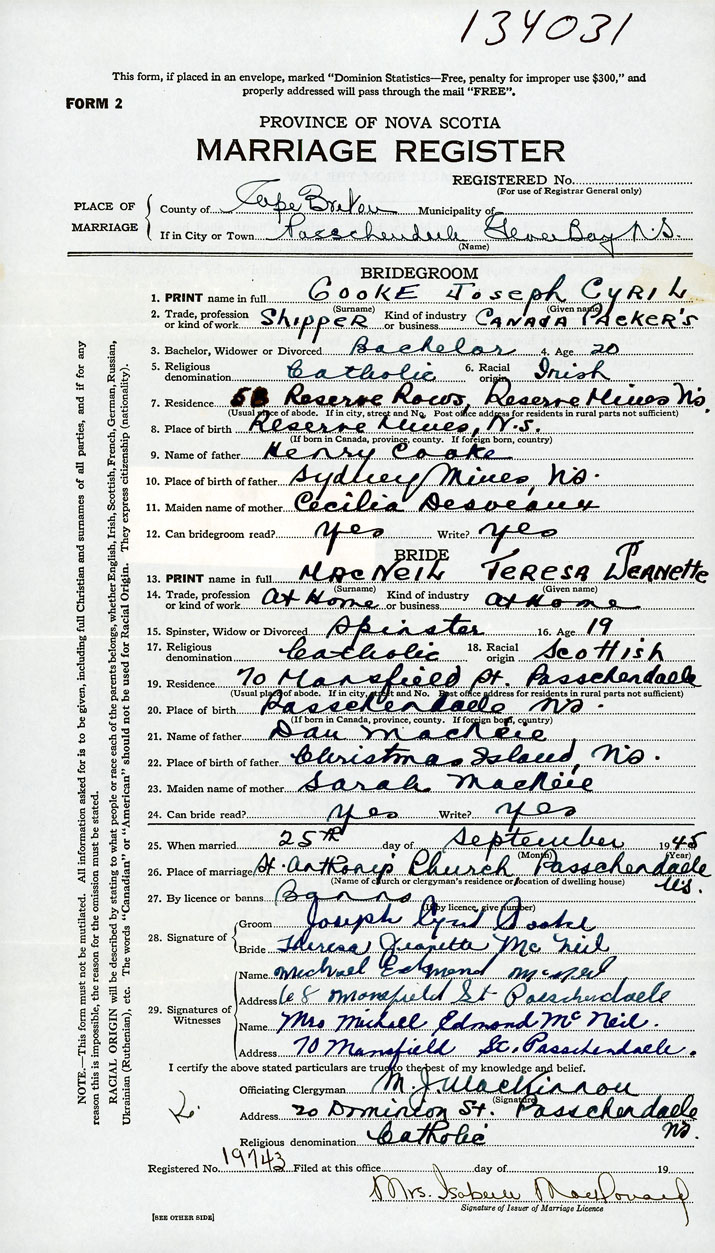 134031
This form, if placed in an envelope, marked “Dominion Statistics—Free, penalty for improper use $300,” and
properly addressed will pass through the mail “FREE”.
FORM 2
PROVINCE OF NOVA SCOTIA
MARRIAGE REGISTER
REGISTERED No.
(For use of Registrar General only)
PLACE OF MARRIAGE
County of Cape Breton Municipality of
If in City or Town Passchendale Glace Bay N.S.
(Name)
BRIDEGROOM
1. PRINT name in full COOKE Joseph CYRIL
(Surname) (Given name)
2. Trade, profession or kind of work Shipper Kind of industry or business CANADA PACKER'S
3. Bachelor, Widower or Divorced Bachelor 4. Age 20
5. Religious denomination Catholic 6. Racial origin Irish
7. Residence Reserve Rows, Reserve Mines N.S.
(Usual place of abode. If in city, street and No. Post office address for residents in rural parts not sufficient)
8. Place of birth Reserve Mines, N.S.
(If born in Canada, province, county. If foreign born, country)
9. Name of father Henry Cooke
10. Place of birth of father Sydney Mines, N.S.
11. Maiden name of mother Cecilia Desveaux
12. Can bridegroom read? yes Write? yes
BRIDE
13. PRINT name in full MACNEIL TERESA JEANETTE
(Surname) (Given name)
14. Trade, profession or kind of work at Home Kind of industry or business at Home
15. Spinster, Widow or Divorced Spinster 16. Age 19
17. Religious denomination Catholic 18. Racial origin Scottish
19. Residence 70 Mansfield St. Passchendaele
(Usual place of abode. If in city, street and No. Post office address for residents in rural parts not sufficient)
20. Place of birth Passchendaele N.S.
(If born in Canada, province, county. If foreign born, country)
21. Name of father Dan MacNeil
22. Place of birth of father Christmas Island, N.S.
23. Maiden name of mother Sarah MacNeil
24. Can bride read? yes Write? yes
25. When married 25th day of September 1945
(Month) (Year)
26. Place of marriage St. Anthony's Church Passchendaele N.S.
(Name of church or clergyman's residence or location of dwelling house)
27. By licence or banns Banns
(If by licence, give number)
28. Signature of
Groom Joseph Cyril Cooke
Bride Theresa Jeanette McNeil
29. Signatures of Witnesses
Name Michael Edmond McNeil
Address 68 Mansfield St Passchendaele
Name Mrs Michael Edmond McNeil.
Address 70 Mansfield St, Passchendaele.
I certify the above stated particulars are true to the best of my knowledge and belief.
Officiating Clergyman M. J. MacKinnon
(Signature)
Address 20 Dominion St. Passchendaele N.S.
Religious denomination Catholic
Registered No. 19743 Filed at this office day of 19
Mrs. Isabelle MacDonald
Signature of Issuer of Marriage Licence
[SEE OTHER SIDE]
NOTE.—This form must not be mutilated. All information asked for is to be given, including full Christian and surnames of all parties, and if for any
reason this is impossible, the reason for the omission must be stated.
RACIAL ORIGIN will be described by stating to what people or race each of the parents belongs, whether English, Irish, Scottish, French, German, Russian,
Ukrainian (Ruthenian), etc. The words “Canadian” or “American” should not be used for Racial Origin. They express citizenship (nationality).